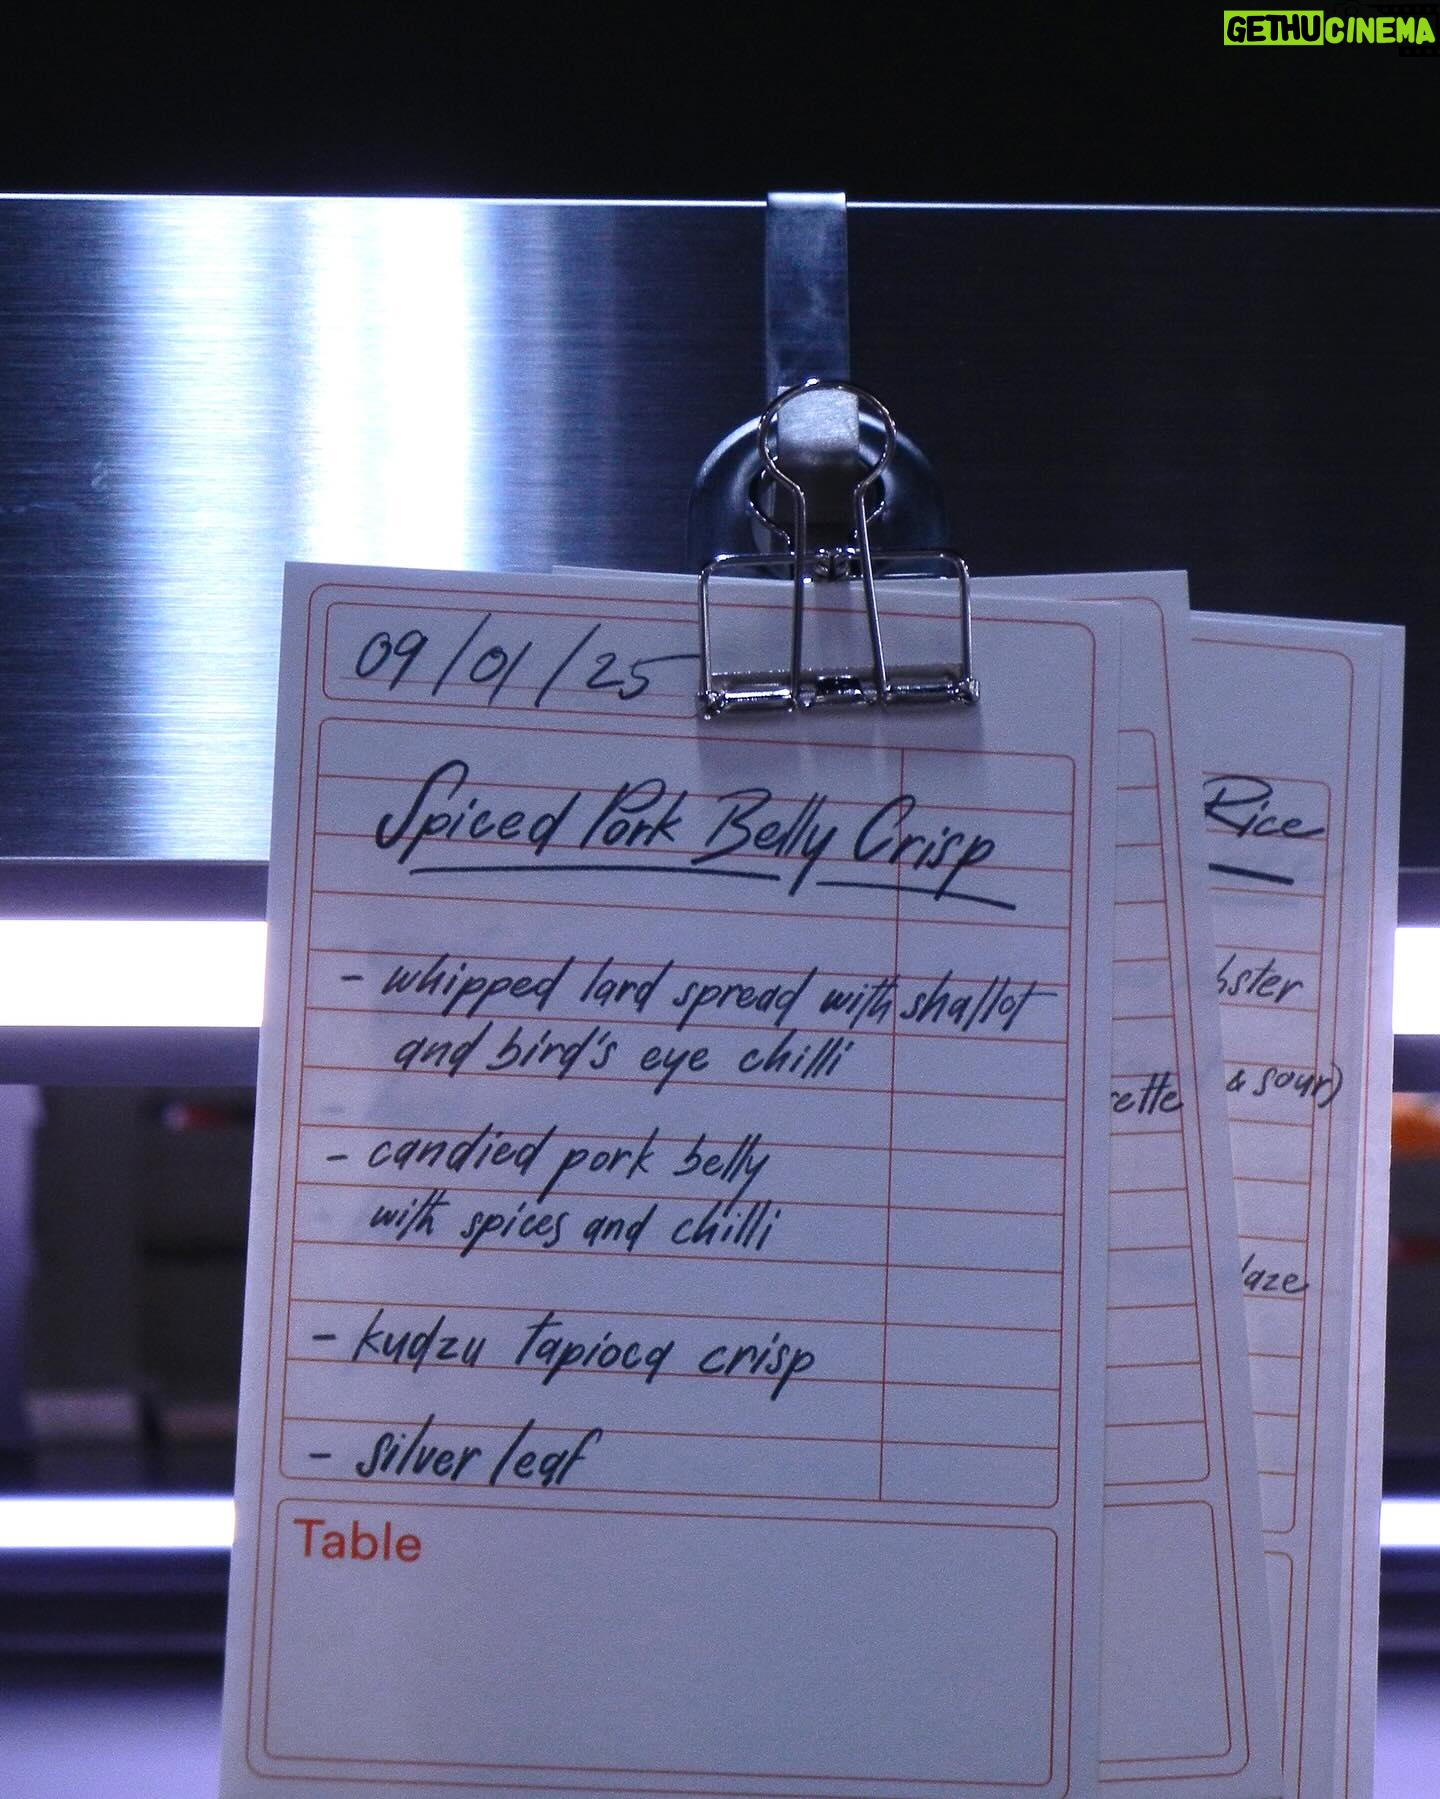 GETHUCINEMA
09/01/25
Spiced Pork Belly Crisp
- whipped lard spread with shallot
and bird's eye chilli
- candied pork belly
with spices and chilli
- kudzu tapioca crisp
- silver leaf
Table
Rice
& sour)